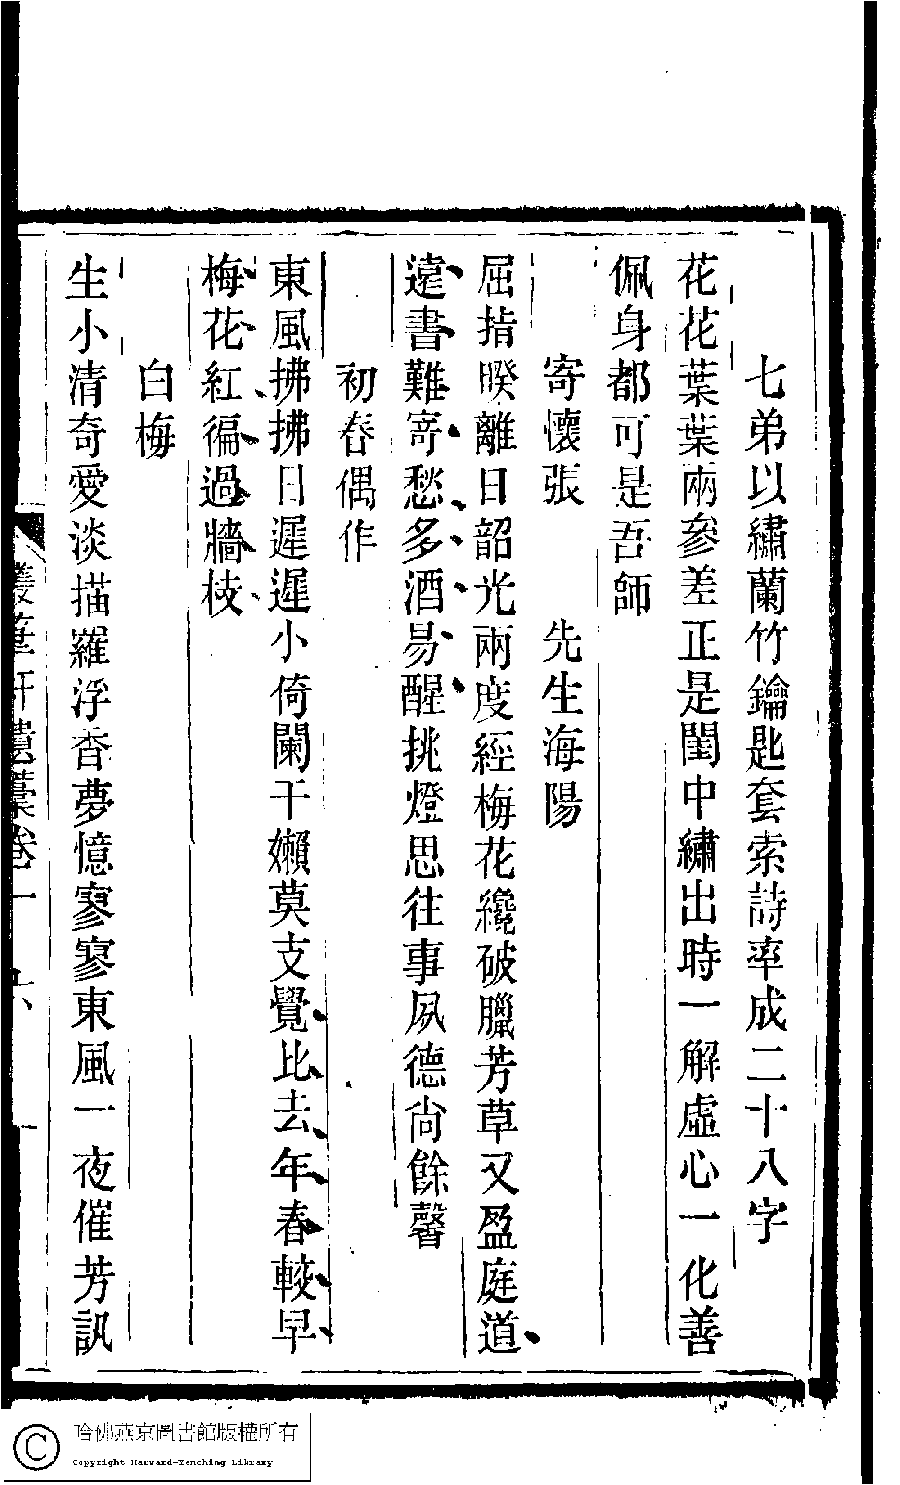 七弟以繡蘭竹鑰匙套索詩率成二十八字
花花葉葉兩參差正是閨中繡出時一解虛心一化善
佩身都可是吾師
寄懷張　　先生海陽
屈指暌離日韶光兩度經梅花纔破臘芳草又盈庭道
遠書難寄愁多酒易醒挑燈思往事夙德尚餘馨
初春偶作
東風拂拂日遲遲小倚闌干嬾莫支覺比去年春較早
梅花紅徧過牆枝
白梅
生小清奇愛淡描羅浮香夢憶寥寥東風一夜催芳訊
叢筆軒遺藁卷一　六
哈佛燕京圖書館版權所有
Copyright Harvard-Yenching Library